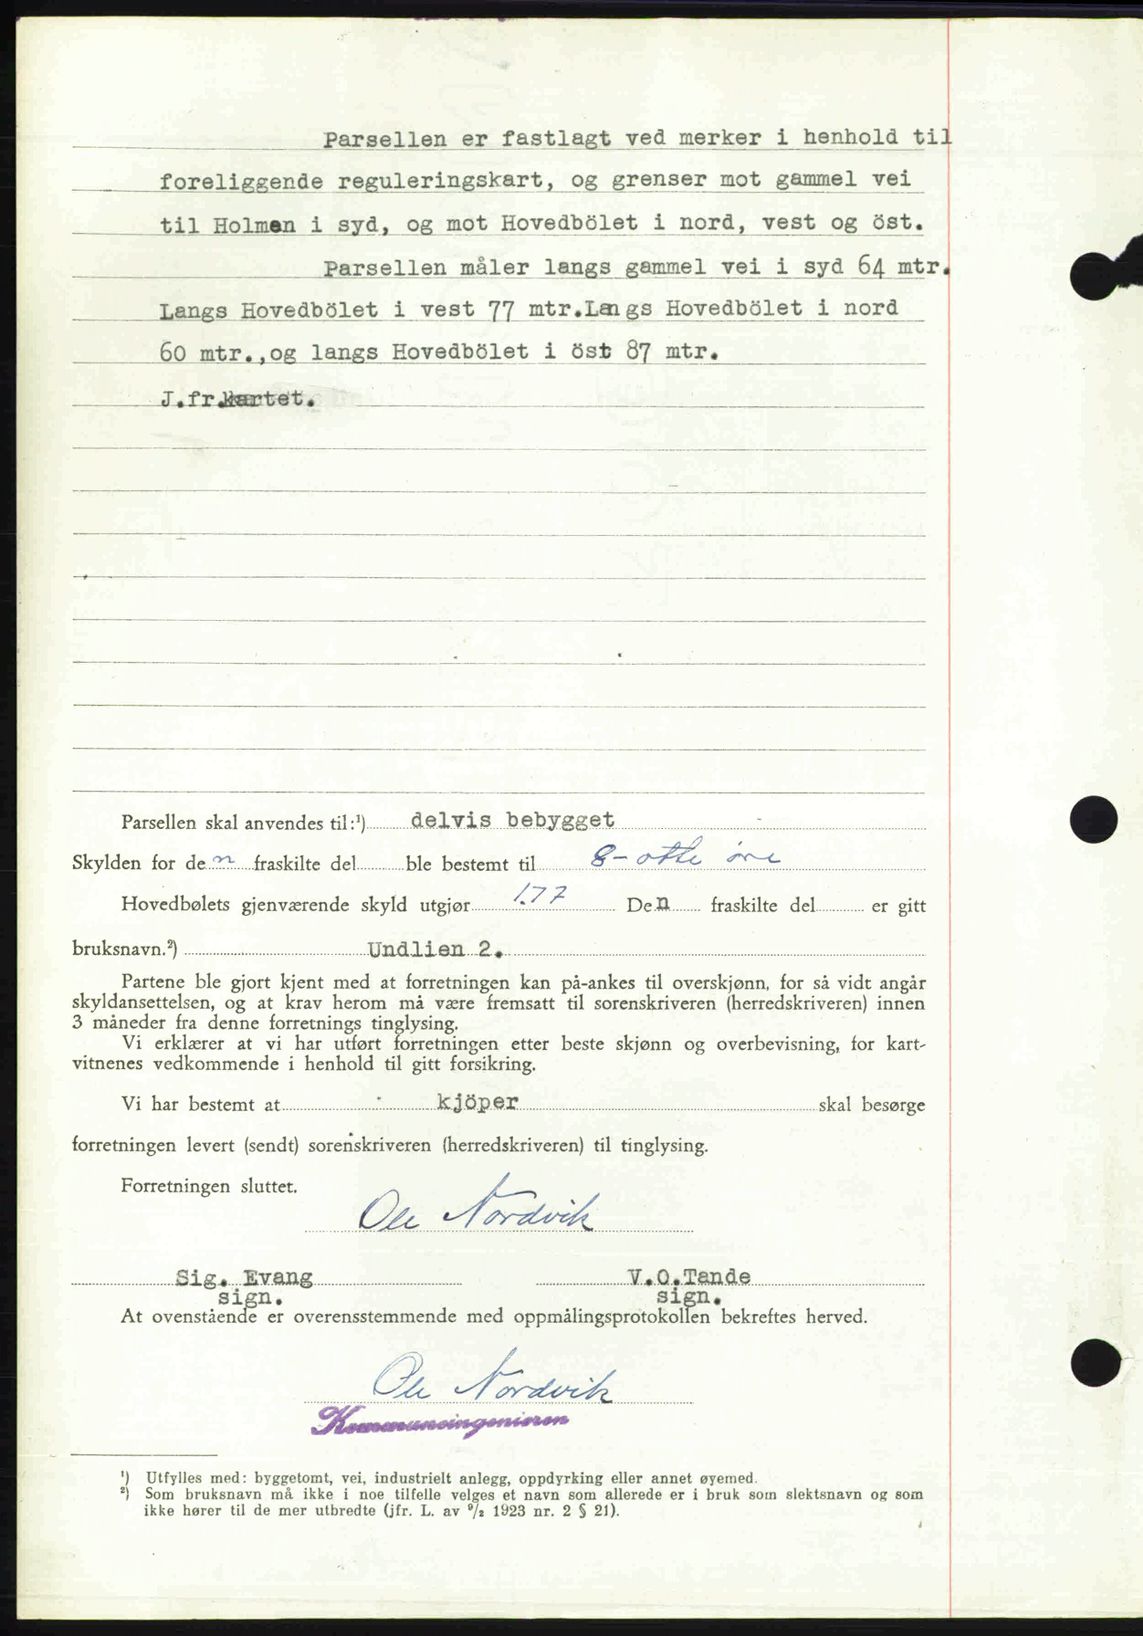 Parsellen er fastlagt ved merker i henhold til
foreliggende reguleringskart, og grenser mot gammel vei
til Holmen i syd, og mot Hovedbölet i nord, vest og öst.
Parsellen måler langs gammel vei i syd 64 mtr.
Langs Hovedbölet i vest 77 mtr.Langs Hovedbölet i nord
60 mtr.,og langs Hovedbölet i öst 87 mtr.
J.fr.kartet.
Parsellen skal anvendes til:¹) delvis bebygget
Skylden for den fraskilte del ble bestemt til 8- otte øre
Hovedbølets gjenværende skyld utgjør 1.77 Den fraskilte del er gitt
bruksnavn.²) Undlien 2.
Partene ble gjort kjent med at forretningen kan på-ankes til overskjønn, for så vidt angår
skyldansettelsen, og at krav herom må være fremsatt til sorenskriveren (herredskriveren) innen
3 måneder fra denne forretnings tinglysing.
Vi erklærer at vi har utført forretningen etter beste skjønn og overbevisning, for kart-
vitnenes vedkommende i henhold til gitt forsikring.
Vi har bestemt at kjöper skal besørge
forretningen levert (sendt) sorenskriveren (herredskriveren) til tinglysing.
Forretningen sluttet.
Ole Nordvik
Sig. Evang V.O.Tande
sign. sign.
At ovenstående er overensstemmende med oppmålingsprotokollen bekreftes herved.
Ole Nordvik
Kommuneingeniøren
¹) Utfylles med: byggetomt, vei, industrielt anlegg, oppdyrking eller annet øyemed.
²) Som bruksnavn må ikke i noe tilfelle velges et navn som allerede er i bruk som slektsnavn og som
ikke hører til de mer utbredte (jfr. L. av ⁹/₂ 1923 nr. 2 § 21).